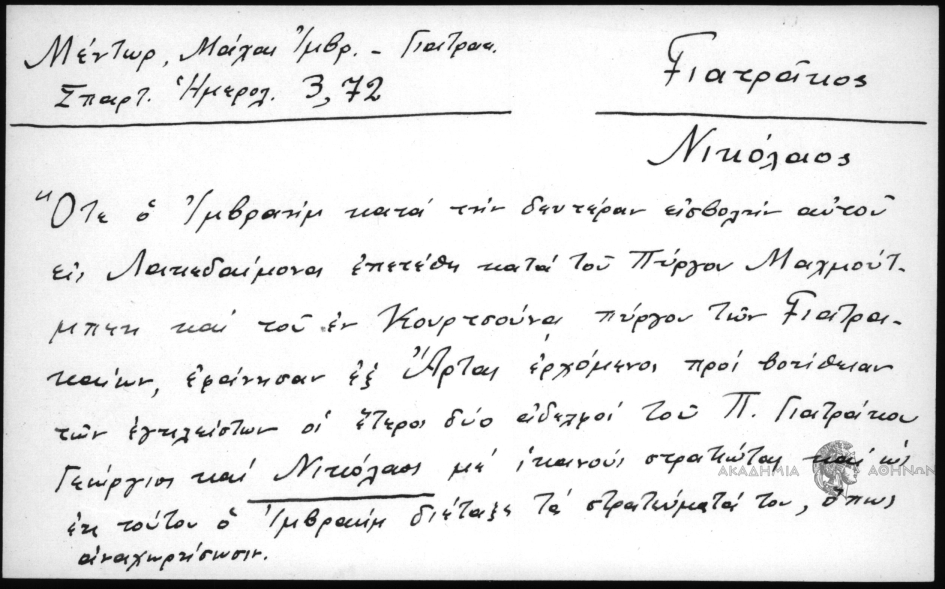 Μέντωρ, Μάχαι Ἰμβρ. - Γιατρακ.
Σπαρτ. Ἡμερολ. 3,72
Γιατράκος
Νικόλαος
"Ὅτε ὁ Ἰμβραήμ κατά τήν δευτέραν εἰσβολήν αὐτοῦ
εἰς Λακεδαίμονα ἐπετέθη κατά τοῦ Πύργου Μαχμούτ-
μπεη καί τοῦ ἐν Κουρτσούνα πύργου τῶν Γιατρα-
καίων, ἐφάνησαν ἐξ Ἄρτας ἐρχόμενοι πρός βοήθειαν
τῶν ἐγκλείστων οἱ ἕτεροι δύο ἀδελφοί τοῦ Π. Γιατράκου
Γεώργιος καί Νικόλαος μέ ἱκανούς στρατιώτας καί ὡς
ἐκ τούτου ὁ Ἰμβραήμ διέταξε τά στρατεύματά του, ὅπως
ἀναχωρήσωσιν.
ΑΚΑΔΗΜΙΑ ΑΘΗΝΩΝ